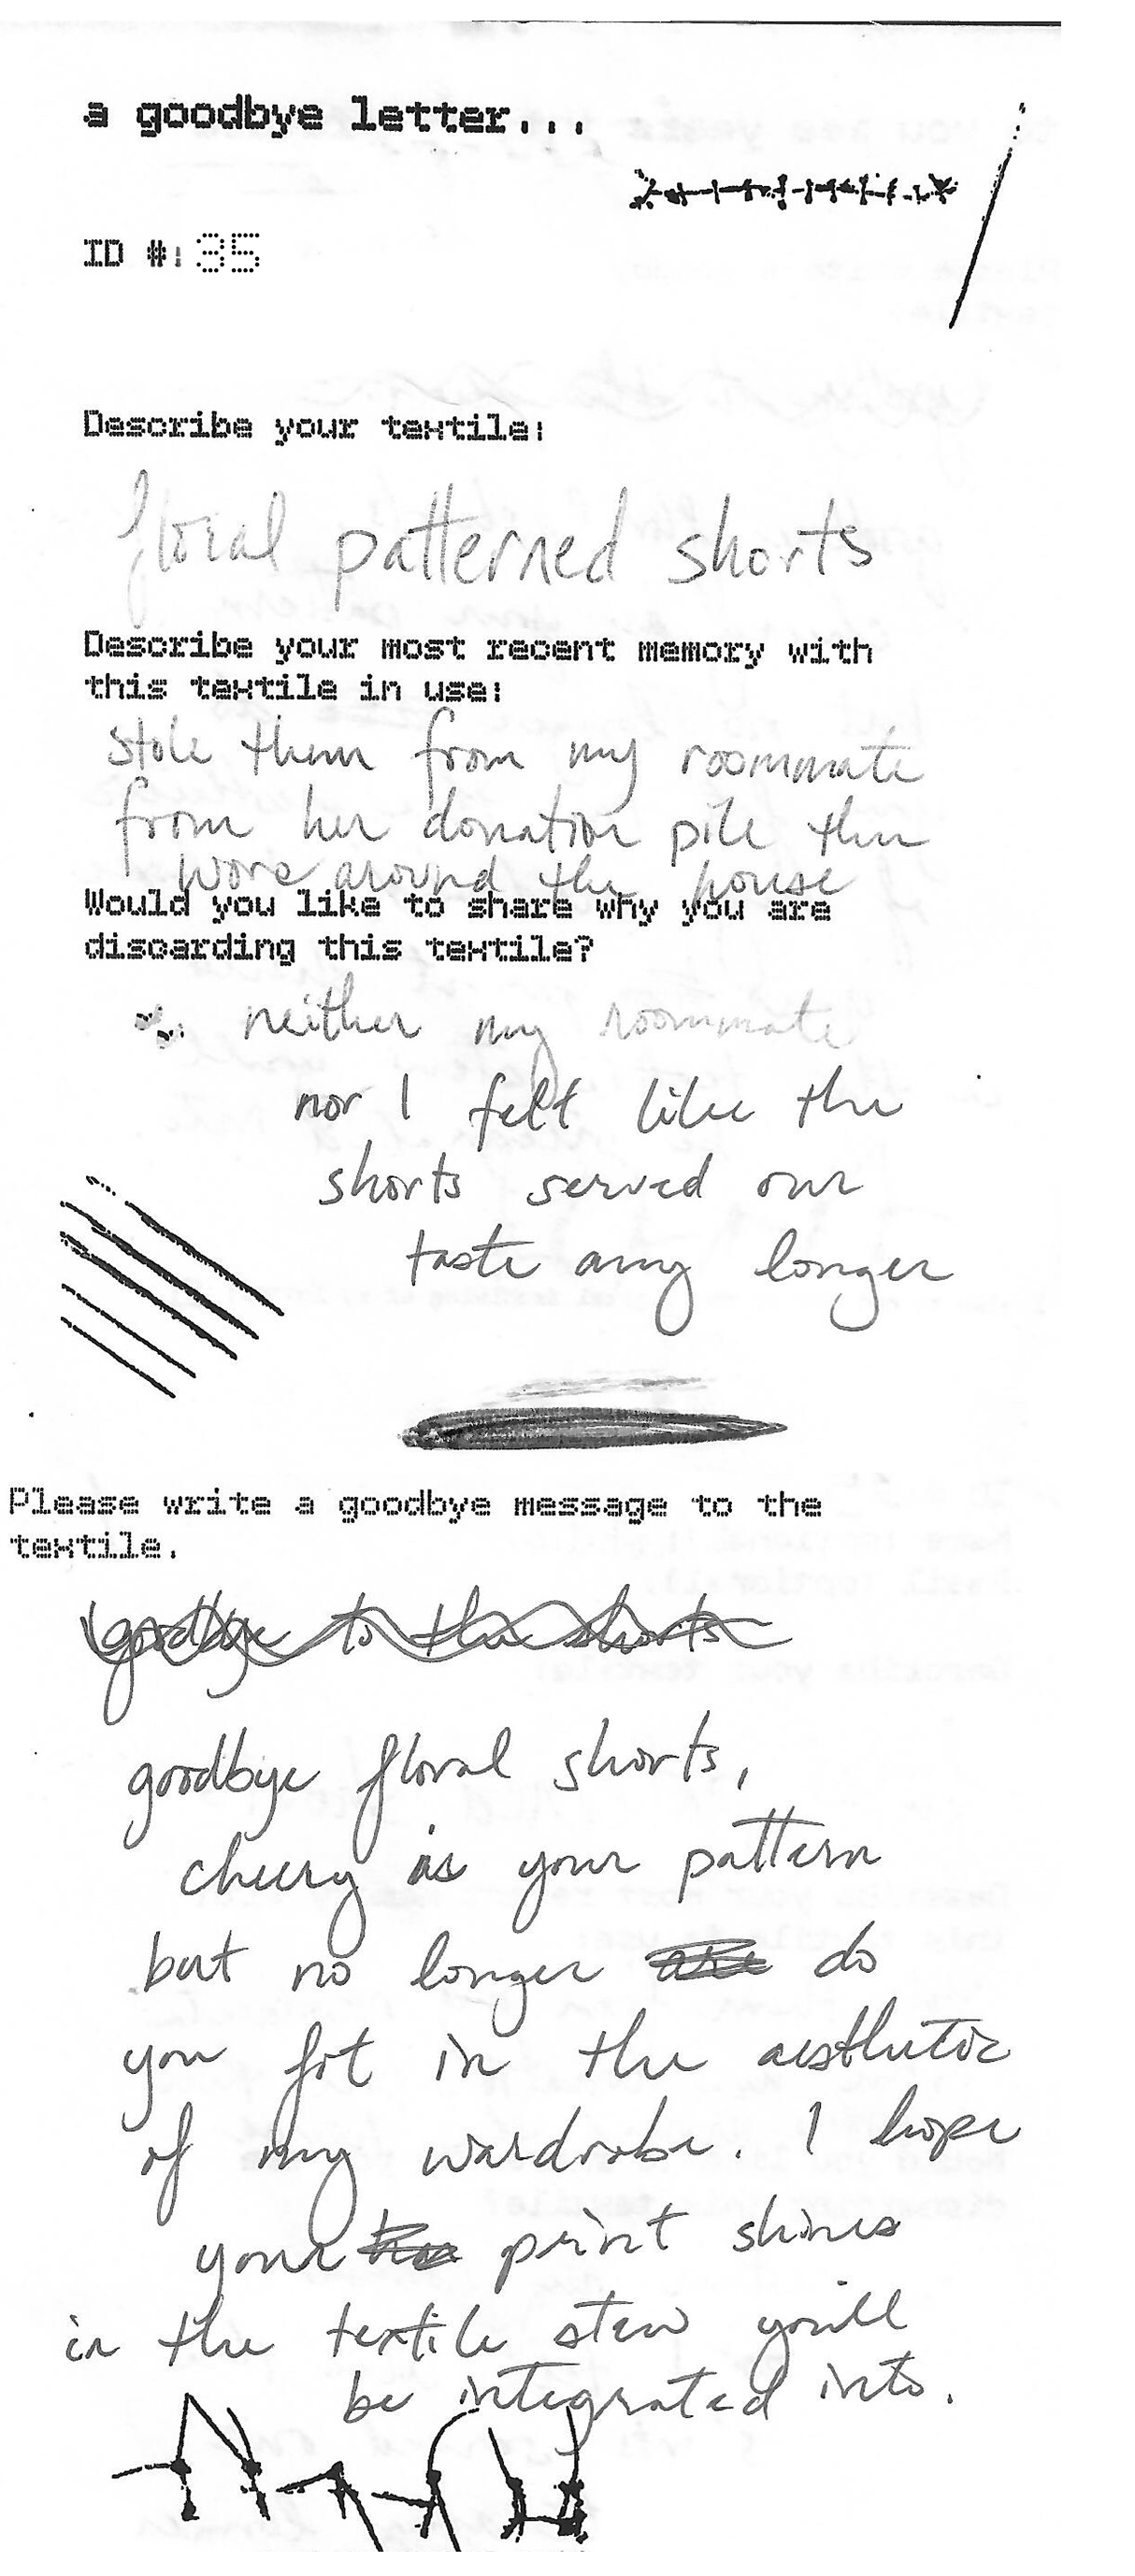 a goodbye letter...
ID #: 35
Describe your textile:
floral patterned shorts
Describe your most recent memory with
this textile in use:
stole them from my roommate
from her donation pile then
wore around the house
Would you like to share why you are
discarding this textile?
neither my roommate
nor I felt like the
shorts served our
taste any longer
Please write a goodbye message to the
textile.
goodbye to the shorts
goodbye floral shorts,
cheery is your pattern
but no longer are do
you fit in the aesthetic
of my wardrobe. I hope
your print shines
in the textile stew you'll
be integrated into.